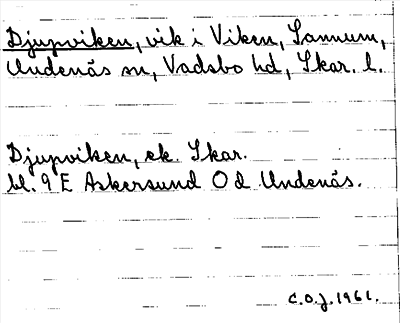 Djupviken, vik i Viken, Sannum,
Undenäs sn, Vadsbo hd, Skar. l.
Djupviken, ek. Skar.
bl. 9 E Askersund Od Undenäs.
C.O.J. 1961.